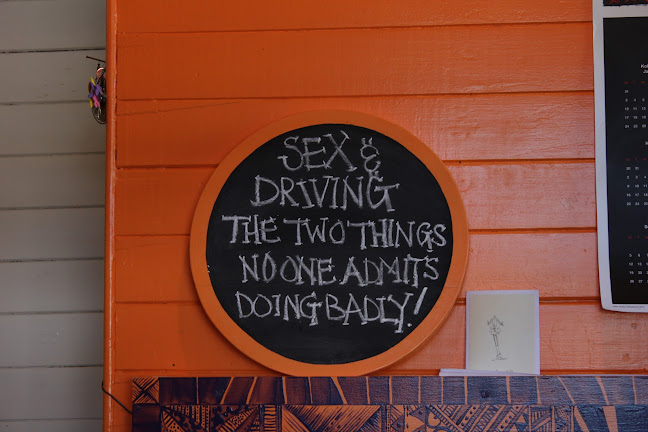 SEX &
DRIVING
THE TWO THINGS
NO ONE ADMITS
DOING BADLY!